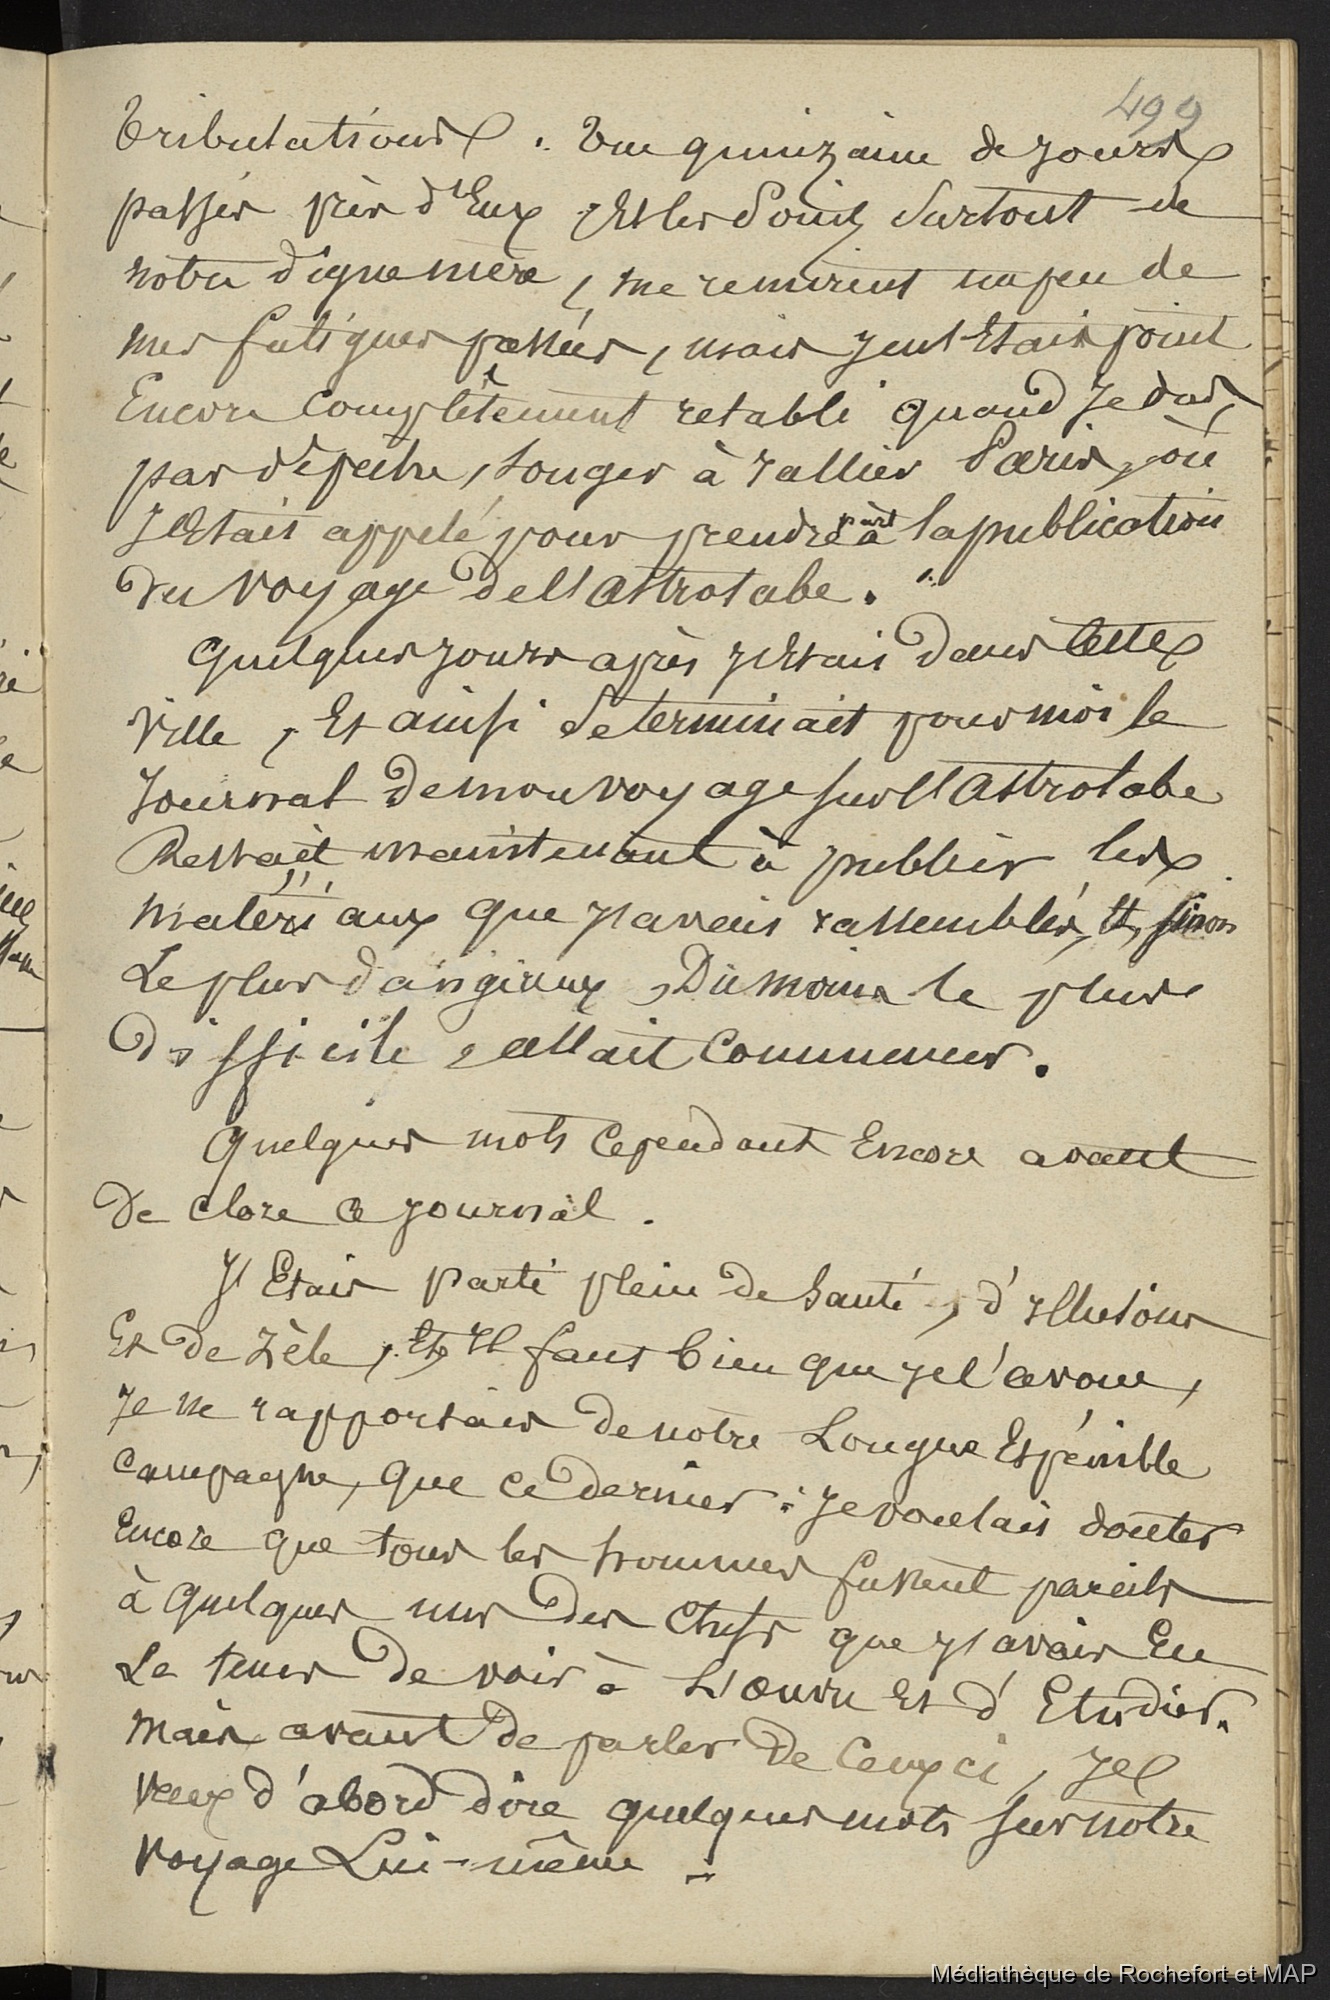 499
tributations. Une quinzaine de jours
passés près d'Eux, Et les soins surtout de
notre digne mère, me remirent un peu de
mes fatigues passées, mais je n'Etais point
Encore complètement retabli quand Je dus,
par dépêche, songer à rallier Paris, où
J'Etais appelé pour prendre part à la publication
du voyage de l'Astrolabe.
Quelques jours après J'Etais dans cette
ville, Et ainsi se terminait pour moi le
Journal de mon voyage sur l'Astrolabe
Restait maintenant à publier les
matériaux que J'avais rassemblés, Et, sinon
Le plus dangereux, Du moins le plus
difficile, allait commencer.
Quelques mots cependant Encore avant
De clore ce journal.
J'Etais parti plein de santé, d'Illusions
Et de zèle, Et, Il faut bien que Je l'avoue,
Je ne rapportais de notre Longue Et pénible
campagne, que ce dernier : Je voulais douter
Encore que tous les hommes fussent pareils
à quelques uns des chefs que J'avais Eu
Le tems de voir à L'œuvre Et d'Etudier.
Mais avant de parler de Ceux ci, Je
veux d'abord dire quelques mots sur notre
voyage Lui-même.
Médiathèque de Rochefort et MAP